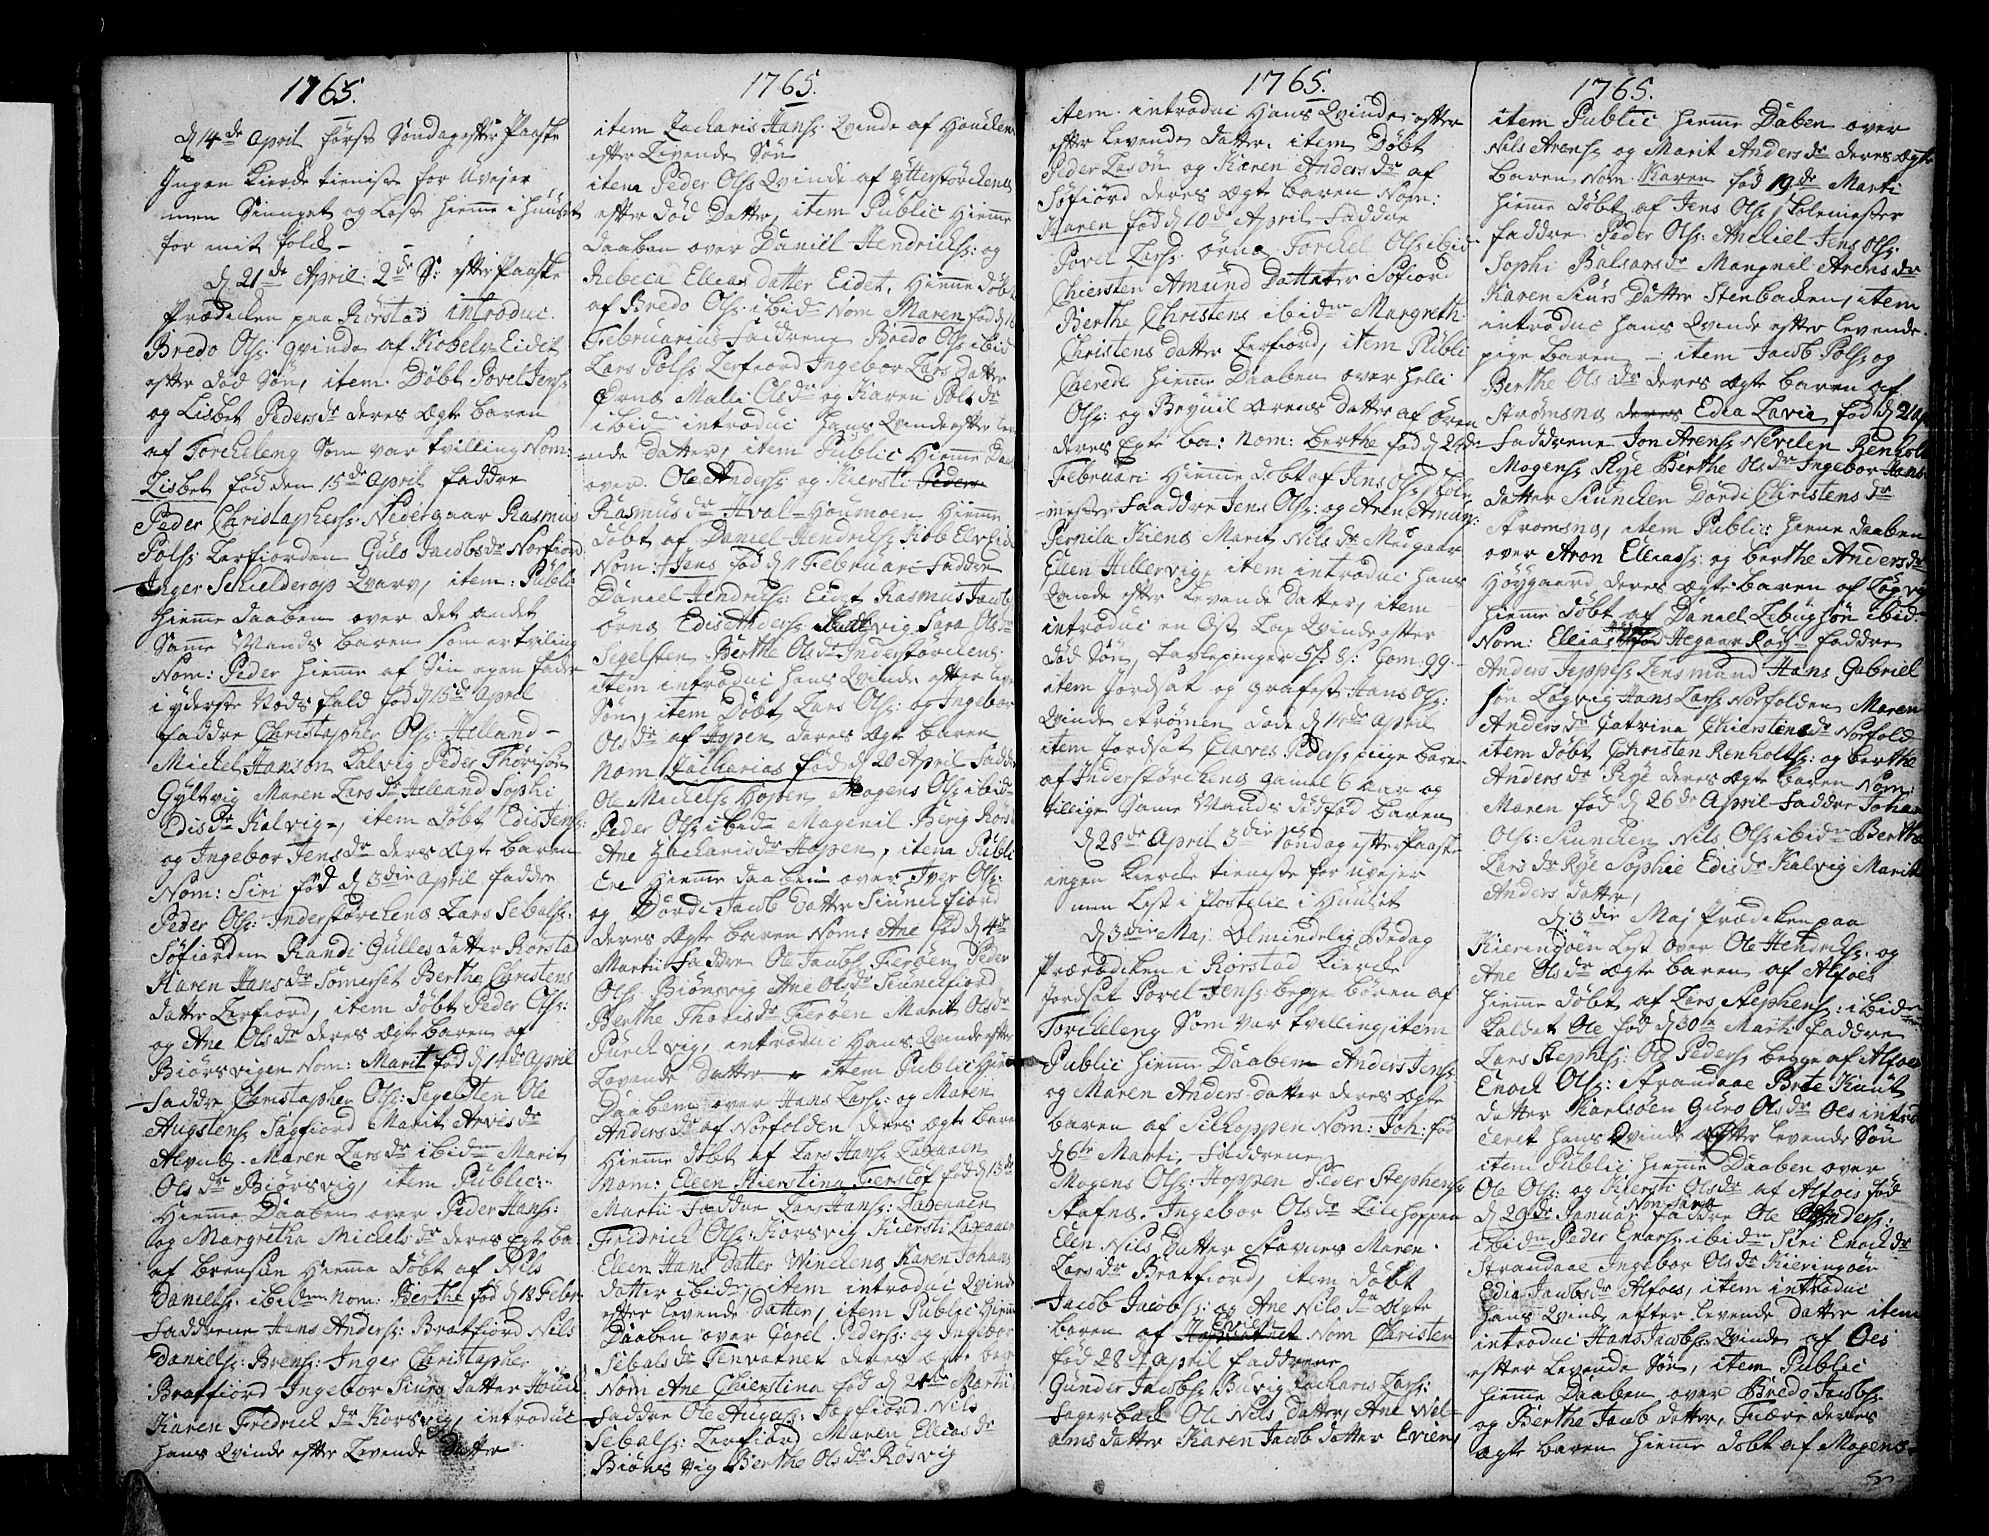 1765.
D 14de April først Søndag efter Paaske
Ingen Kierke tieniste for Uvejer
men Siunget og Læst hiemme i huuset
for mit folk -
D 21de April 2de S: efter Paaske
Prædicken paa Rørstad introduc.
Bredo Ols: qvinde af Kobelv-Eidet
efter død Søn, item Døbt Povel Jens:
og Lisbet Pedersdr deres ægte baren
af Torckeleng Som var tvilling Nom:
Lisbet fød den 15de April faddre
Peder Christophers: Nedergaar Rasmus
Pols: Lerfiorden Guls Jacobsdr Norfiord
Inger Schielderop Qvarv, item: Publi
hiemme daaben over det andet
Samme Mands baren som er tviling
Nom: Peder hiemme af Sin egen fader
i yderste Nøds fald fød d 15de April
faddre Christopher Ols: Helland -
Mickel Hanson Kalvig Peder Thorison
Gyltvig Maren Larsdr Helland Sophi
Edisdr Kalvig, item Døbt Edis Jens:
og Ingebor Jensdr deres ægte baren
Nom: Siri fød d 3die April faddre
Peder Ols: Inderstørckens Lars Sebals:
Søfiorden Randi Gulles datter Rorstad
Karen Hansdr Somerset Berthe Christens
datter Lerfiord, item døbt Peder Ols:
og Ane Olsdr deres ægte baren af
Biørsvigen Nom: Marit fød d 14de April
faddre Christopher Ols: Segelsten Ole
Augstens: Sagfiord Marit Arvisdr
Maren Larsdr ibidm Marit
Olsdr Biørsvig, item Public:
Hiemme Daaben over Peder Hans:
og Margretha Mickelsdr deres Egte ba
af Brensun hiemme døbt af Nils
Daniels: ibidm Nom: Berthe fød d 18 Febr
faddrene Hans Anders: Bratfiord Nils
Daniels: Brens: Inger Christopher
Bratfiord Ingebor Siurs datter
Karen Fredrickdr Korsvig, introduc
hans Qvinde efter Levende datter
1765.
item Zacharis Hans: Qvinde af
efter Levende Søn
item Peder Ols Qvinde af Ytterstørckens
efter død Datter, item Public Hiemme
daaben over Daniel Hendricks: og
Rebeca Ellias datter Eidet, Hiemme døbt
af Bredo Ols: ibidm Nom Maren fød d 16
Februarius faddrene Bredo Ols: ibid
Lars Pols: Lerfiord Ingebor Lars Datter
Ørnes Mali Olsdr og Karen Polsdr
ibid introduc hans Qvinde efter Lev
-ende datter, item Public Hiemme Daa
over Ole Anders: og Kiersti
Rasmusdr Aval-Houmoen Hiemme
døbt af Daniel Hendricks: Kob Elv Eid
Nom: Jens fød d 11 Februari faddre
Daniel Hendricks: Eidet Rasmus Jacob
Ørnes Edis Anders: Sara Olsdr
Segelsten Berthe Olsdr Inderstørckens
item introduc hans Qvinde efter Lev
Søn, item Døbt Lars Ols: og Ingebor
Olsdr af Hopen deres ægte baren
Nom Zacharias fød d 20 April Faddre
Ole Mickels: Hoppen Mogens Ols: ibid
Peder Ols: ibidm Magenil Berig Rør
Ane Zacharisdr Hoppen, item Publi
Ere hiemme daaben over Iver Ols:
og Dørdi Jacob Datter Siunckfiord
deres ægte baren Nom: Ane fød d 4de
Martii Faddre Ole Jacobs: Fieröen Peder
Ols: Biørnsvig Ane Olsdr Siunckfiord
Berthe Thorisdr Fieröen Marit Olsdr
Purckvig, introduc Hans Qvinde efter
Levende datter, item Public hiem
Daaben over Hans Lars: og Maren
Andersdr af Norfolden deres ægte bare
hiemme døbt af Lars Hans: Laxaaen
Nom: Eleen Kierstina Gersløf fød d 13de
Martii Faddre Lars Hans: Laxaaen
Fredrick Ols: Korsvig Kiersti Laxaaen
Eleen Hans datter Winckens Karen Johans
datter ibidm, item introduc Qvinde
efter Levende datter, item Public hiem
Daaben over Carel Peders: og Ingebor
Sebalsdr Tenvatnet deres ægte bar
Nom Ane Chierstina fød d 24de Martii
Faddre Ole Augus: Sagfiord Nils
Sebals: Lerfiord Maren Elliasdr
Biørnsvig Berthe Olsdr Rosvig
1765.
item introduc Hans Qvinde efter
efter Levende datter, item Døbt
Peder Lasøn og Karen Andersdr af
Søfiord deres ægte baren Nom:
Maren fød d 10de April Faddre
Povel Lars: Ørnes Torckel Ols: ibid
Chiersten Amund Datter Søfiord
Berthe Christens ibidm Margreth
Christens datter Lerfiord, item Publi
Cerede hiemme Daaben over Helli
Ols: og Beruil Arens datter af Ören
deres Egte ba: Nom: Berthe fød d 24de
Februari hiemme døbt af Jens Ols: Skole
-mester Faaddre Jens Ols: og Aren Amun:
Pernila Kiens Marit Nilsdr Medgaar
Ellen Hellervig, item introduc hans
Qvinde efter Levende datter, item
introduc en Øst Lap Qvinde efter
død Søn, Tavlepenger Com: 99.
item Jordsat og grafest Hans Ols:
Qvinde Strømen døde d 14de April
item Jordsat Claves Peders: pige bare
af Inderstørckens gamel 6 aar og
tillige Same Mands dødfød baren
D 28de April 3die Søndag efter Paaske
ingen Kierke tieniste for uvejer
men Læst i Postelie i Huuset
D 3die Maj Almindelig Bededag
Prædicken i Rørstad Kierke
Jordsat Povel Jens: begge børen af
Torckeleng Som var tvilling, item
Public hiemme Daaben Anders Jens:
og Maren Anders datter deres ægte
baren af Silhoppen Nom: Joh: fød
d 6te Marti, Faddrene
Mogens Ols: Hoppen Peder Stephens:
Stafnes Ingebor Olsdr Lilehoppen
Elen Nils datter Stavnes Maren
Larsdr Bratfiord, item døbt
Jacob Jacobs: og Ane Nilsdr ægte
baren af Evien Nom Christen
fød 28de April Faddrene
Gunder Jacobs: Buvig Zacharis Lars:
Fagerback Ole Nils datter, Ane Wel-
oms datter Karen Jacob datter Eviens
1765.
item Public hiemme Daben over
Nils Arens: og Marit Andersdr deres ægte
baren Nom Karen fød 19de Marti
hiemme Døbt af Jens Ols: Skolemester
Faddre Peder Ols: Anckiel Jens Ols:
Sophi Balsarsdr Mangnil Arensdr
Karen Siurs datter Stenbacken, item
introduc hans Qvinde efter Levende
pige baren - item Jacob Pols: og
Berthe Olsdr deres ægte baren af
Strømsnes deres Edea Lavea fød d 21 Ap
Faddrene Jon Arens: Nevelen Renholt
Mogens: Rye Berthe Olsdr Ingebor Hans
datter Siuncken Dørdi Christensdr
Strømsnes, item Public: hieme daaben
over Aron Ellias: og berthe Andersdr
Høygaard deres ægte baren af Løgvig
hiemme døbt af Daniel Zebulsøn ibidm
Nom: Ellias Hegaar Rav- faddre
Anders Jeppes: Lensmand Hans Gabriel
søn Løgvig Hans Lars: Norfolden Maren
Andersdr Catrina Chierstinedr Norfold
item døbt Christen Renholts: og berthe
Andersdr Rye deres ægte baren Nom:
Maren fød d 26de April Faddre Johan
Ols: Siuncken Nils Ols: ibidm Berthe
Larsdr Rye Sophie Edisdr Kalvig Marit
Anders datter,
D: 3die Maj Prædicken paa
Kieringöen Lyst over Ole Hendricks: og
Ane Olsdr ægte baren af Alfoes
Hiemme døbt af Lars Stephens: ibidm
kaldet Ole fød d 30te Marti faddre
Lars Stephens: Ole Peders: begge af Alfoes
Enock Ols: Strandaae Brte Knut
datter Karlsöen Guro Olsdr Oes introd
ceret hans Qvinde efter Levende Søn
item Public hiemme Daaben over
Ole Ols: og Kiersti Olsdr af Alfoes fød
d 29de Januar Nom Sara faddre Ole Anders:
ibidm Peder Enars: ibidm Siri Enockdr
Strandaae Ingebor Olsdr Kieringöen
Edia Jacobsdr Alfoes, item introduc
hans Qvinde efter Levende datter item
introduc Hans Jacobs: Qvinde af Oes
efter Levende Søn, item Public
hiemme Daaben over Bredo Jacobs:
og Berthe Jacob datter, Fiære deres
ægte baren hiemme døbt af Mogens